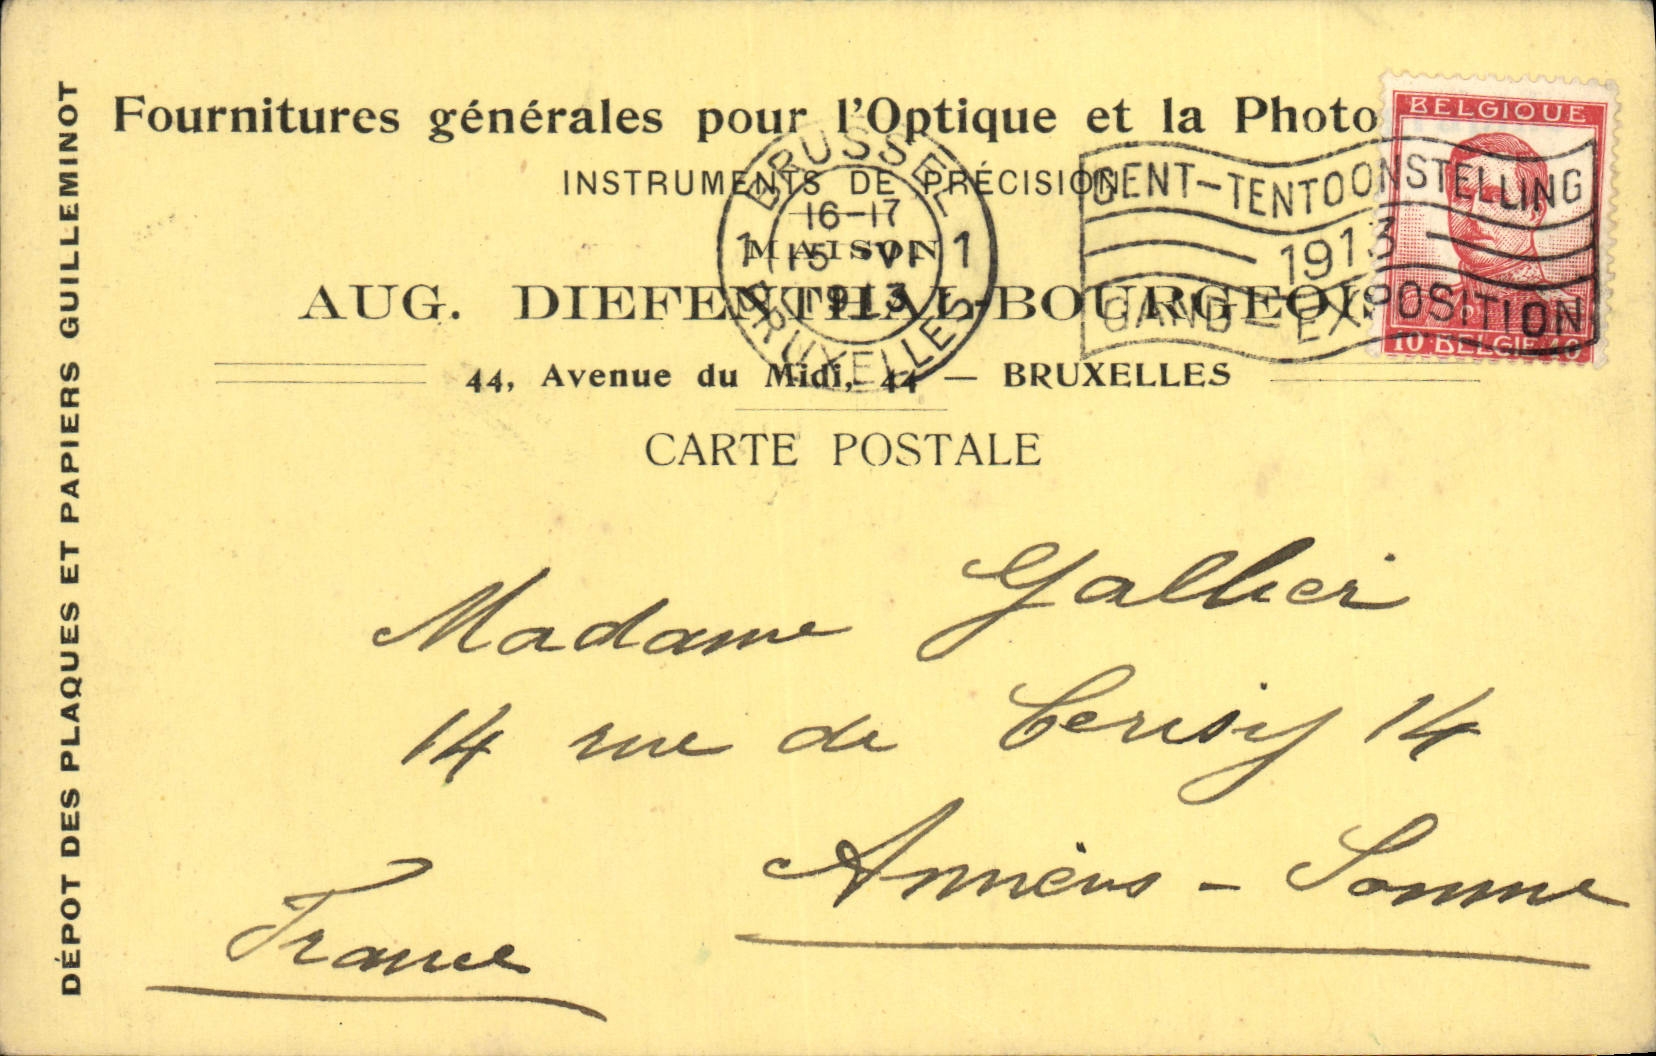 DÉPOT DES PLAQUES ET PAPIERS GUILLEMINOT
Fournitures générales pour l'Optique et la Photo
INSTRUMENTS DE PRÉCISION
MAISON
AUG. DIEFENTHAL-BOURGEOIS
44, Avenue du Midi, 44 — BRUXELLES
CARTE POSTALE
BRUSSEL
16-17
1 15 -VI 1
1913
BRUXELLES
GENT-TENTOONSTELLING
1913
GAND-EXPOSITION
BELGIQUE
10 BELGIE 10
Madame Gallier
14 rue de Cerisy 14
Amiens - Somme
France